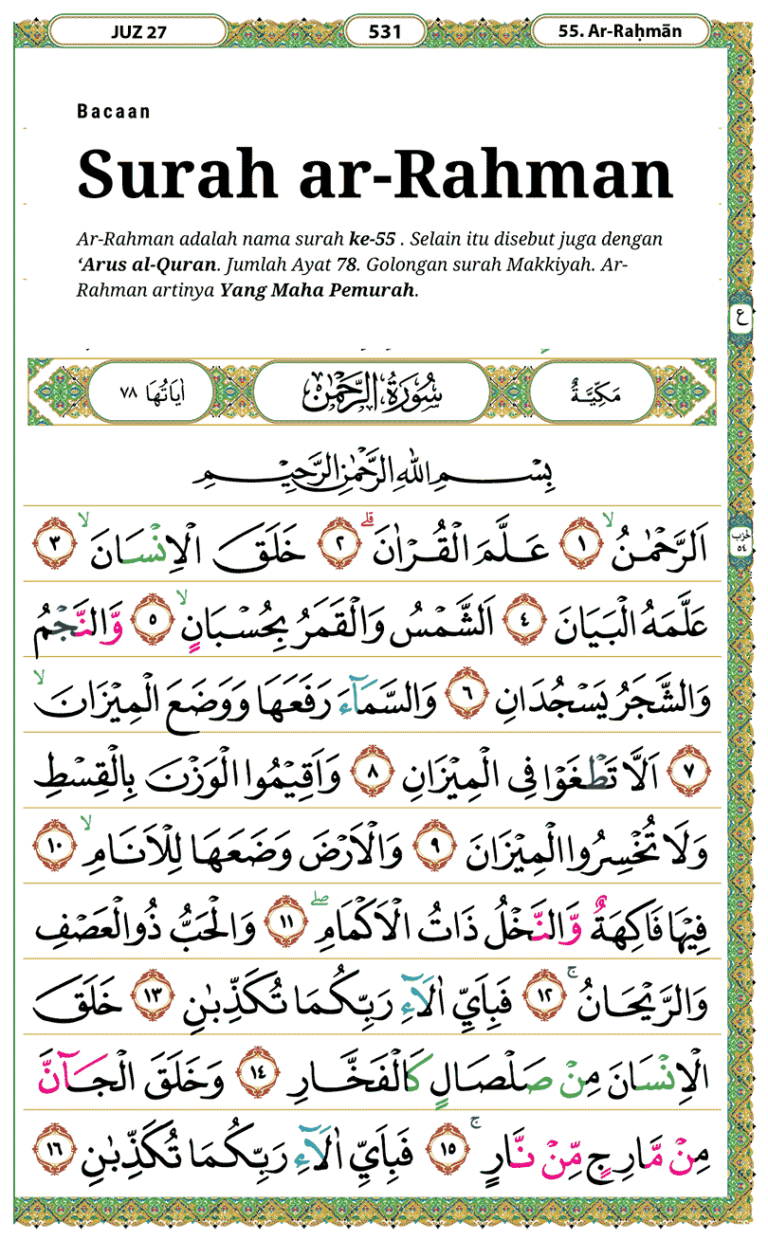 JUZ 27
531
55. Ar-Raḥmān
Bacaan
Surah ar-Rahman
Ar-Rahman adalah nama surah ke-55 . Selain itu disebut juga dengan
‘Arus al-Quran. Jumlah Ayat 78. Golongan surah Makkiyah. Ar-
Rahman artinya Yang Maha Pemurah.
ع
مَكِّيَّةٌ
سُوْرَةُ الرَّحْمٰنِ
اٰيَاتُهَا ٧٨
بِسْمِ اللّٰهِ الرَّحْمٰنِ الرَّحِيْمِ
حزب ٥٤
اَلرَّحْمٰنُۙ ١ عَلَّمَ الْقُرْاٰنَۗ ٢ خَلَقَ الْاِنْسَانَۙ ٣
عَلَّمَهُ الْبَيَانَ ٤ اَلشَّمْسُ وَالْقَمَرُ بِحُسْبَانٍۙ ٥ وَّالنَّجْمُ
وَالشَّجَرُ يَسْجُدَانِ ٦ وَالسَّمَاۤءَ رَفَعَهَا وَوَضَعَ الْمِيْزَانَۙ
٧ اَلَّا تَطْغَوْا فِى الْمِيْزَانِ ٨ وَاَقِيْمُوا الْوَزْنَ بِالْقِسْطِ
وَلَا تُخْسِرُوا الْمِيْزَانَ ٩ وَالْاَرْضَ وَضَعَهَا لِلْاَنَامِۙ ١٠
فِيْهَا فَاكِهَةٌ وَّالنَّخْلُ ذَاتُ الْاَكْمَامِۖ ١١ وَالْحَبُّ ذُو الْعَصْفِ
وَالرَّيْحَانُۚ ١٢ فَبِاَيِّ اٰلَاۤءِ رَبِّكُمَا تُكَذِّبٰنِ ١٣ خَلَقَ
الْاِنْسَانَ مِنْ صَلْصَالٍ كَالْفَخَّارِ ١٤ وَخَلَقَ الْجَاۤنَّ
مِنْ مَّارِجٍ مِّنْ نَّارٍۚ ١٥ فَبِاَيِّ اٰلَاۤءِ رَبِّكُمَا تُكَذِّبٰنِ ١٦